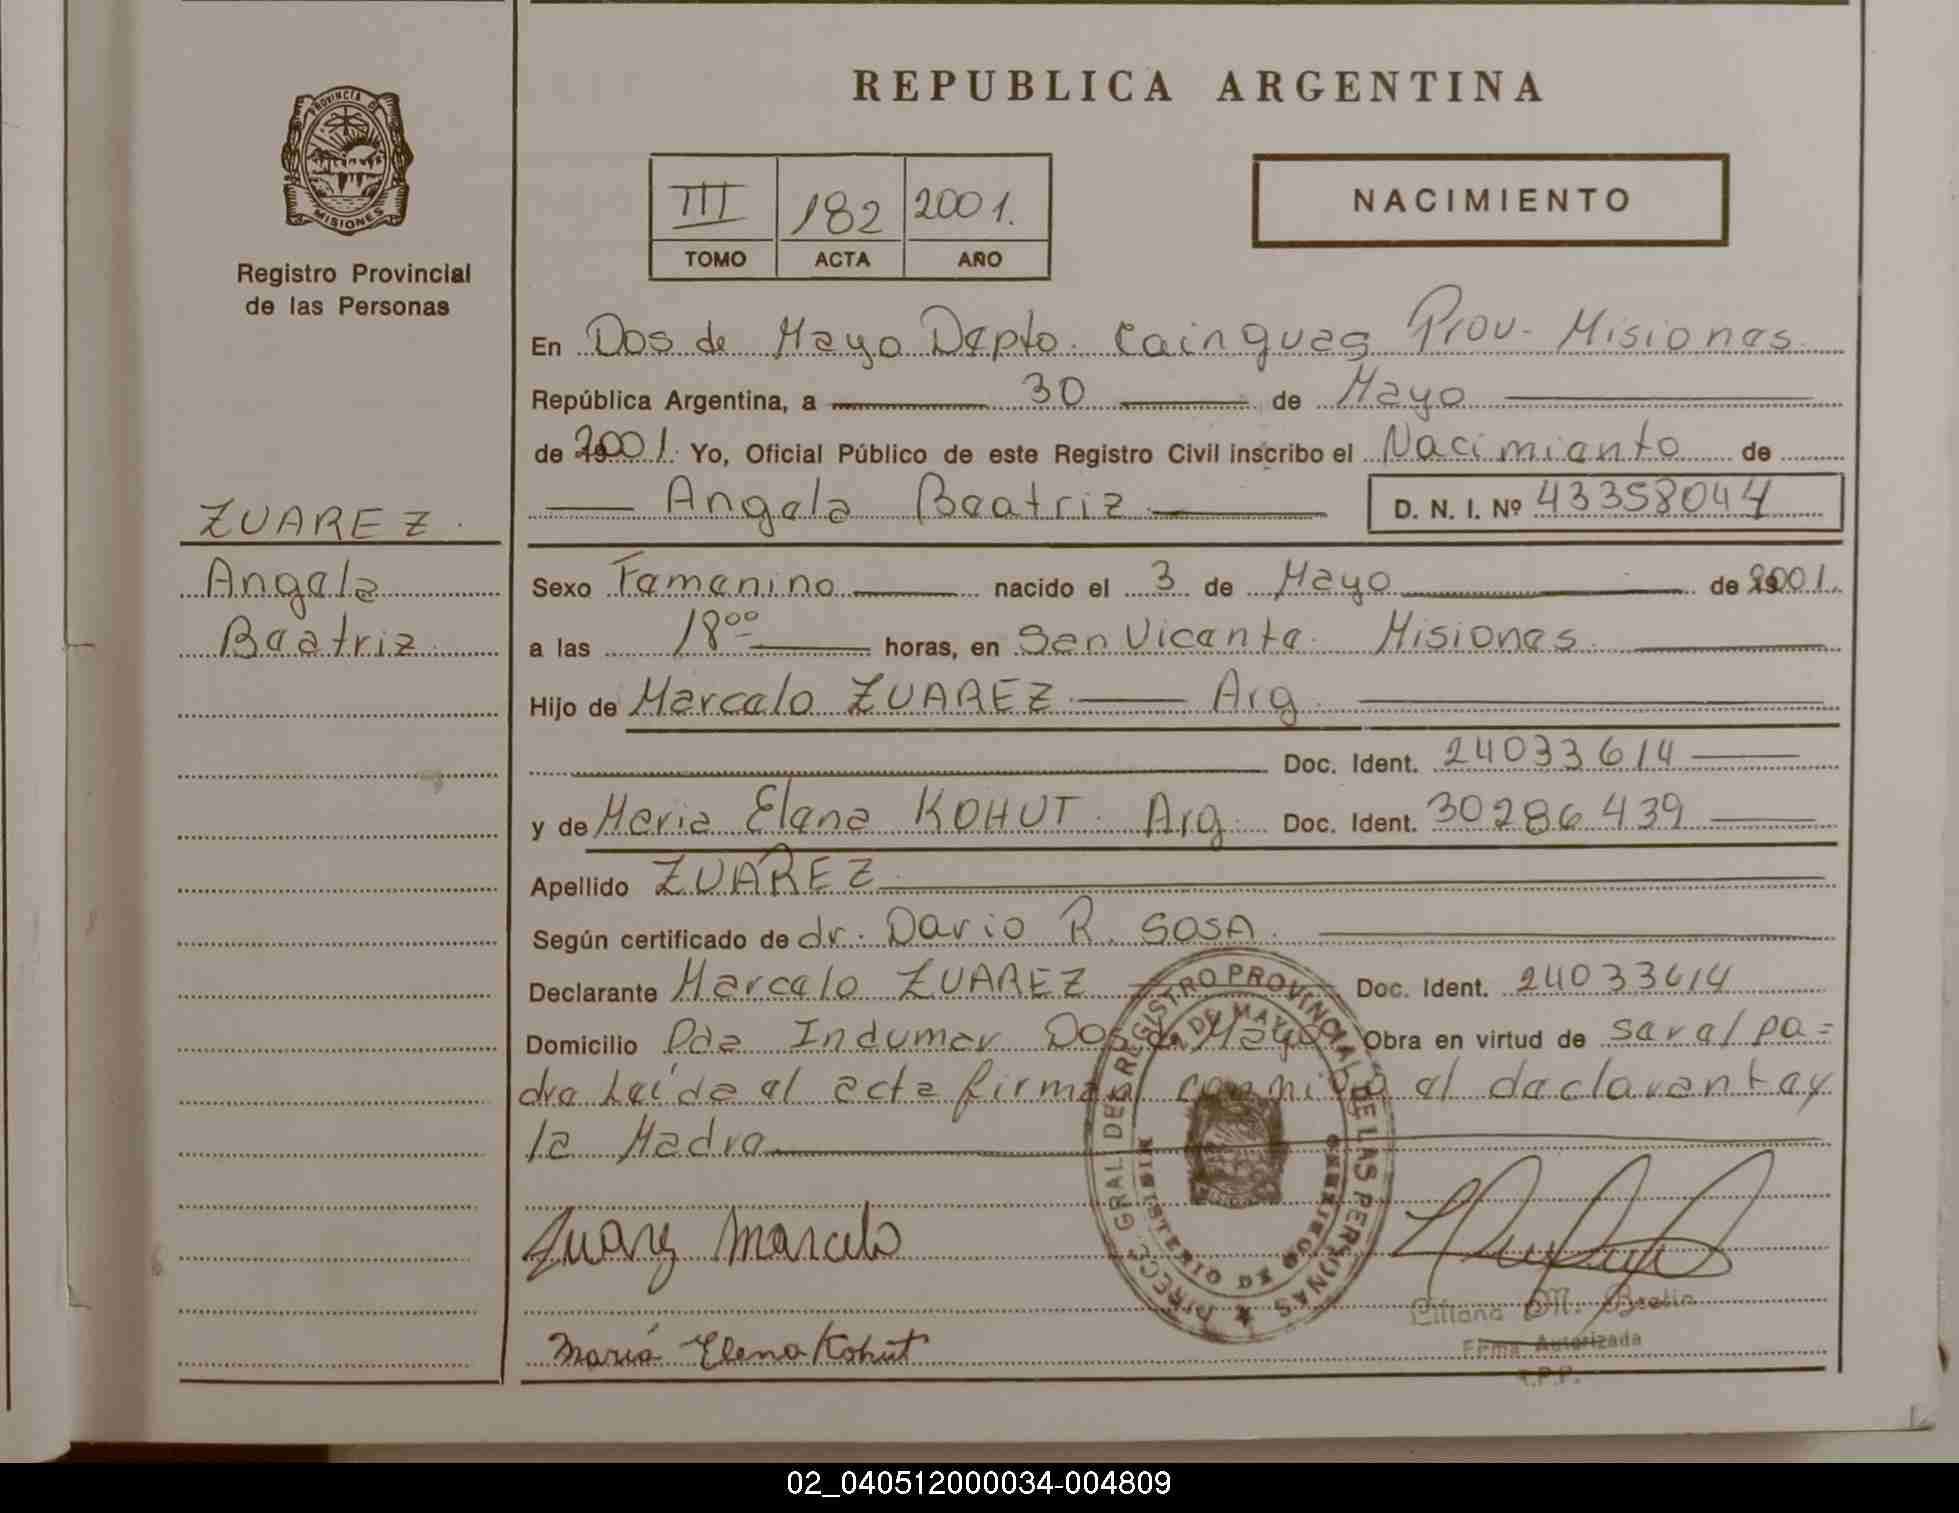 PROVINCIA DE
MISIONES
Registro Provincial
de las Personas
ZUAREZ.
Angela
Beatriz.
REPUBLICA ARGENTINA
III 182 2001.
TOMO ACTA AÑO
NACIMIENTO
En Dos de Mayo Depto. Cainguas Prov- Misiones
República Argentina, a 30 de Mayo
de 2001. Yo, Oficial Público de este Registro Civil inscribo el Nacimiento de
Angela Beatriz D. N. I. Nº 43358044
Sexo Femenino nacido el 3 de Mayo de 2001.
a las 18ºº horas, en San Vicente. Misiones.
Hijo de Marcelo ZUAREZ. Arg.
Doc. Ident. 24033614
y de Maria Elena KOHUT. Arg. Doc. Ident. 30286439
Apellido ZUAREZ.
Según certificado de dr. Dario R. SOSA.
Declarante Marcelo ZUAREZ Doc. Ident. 24033614
Domicilio Pda Indumar Dos de Mayo Obra en virtud de ser el pa=
dre Leída el acta firman conmigo el declarante y
la Madre
DIRECC. GRAL DEL REGISTRO PROVINCIAL DE LAS PERSONAS
DE MAYO
MINISTERIO DE GOBIERNO
Zuarez Marcelo
Maria Elena Kohut
Liliana M.
Firma Autorizada
R.P.P.
02_040512000034-004809